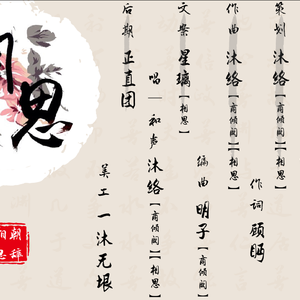 策划 沐络【商倾阁】【相思】
作词 顾眄
作曲 沐络【商倾阁】【相思】
编曲 明子【商倾阁】【相思】
文案 星璃【相思】
唱—和声 沐络【商倾阁】【相思】
后期 正直团
美工 一沐无垠
思
朝辞
思